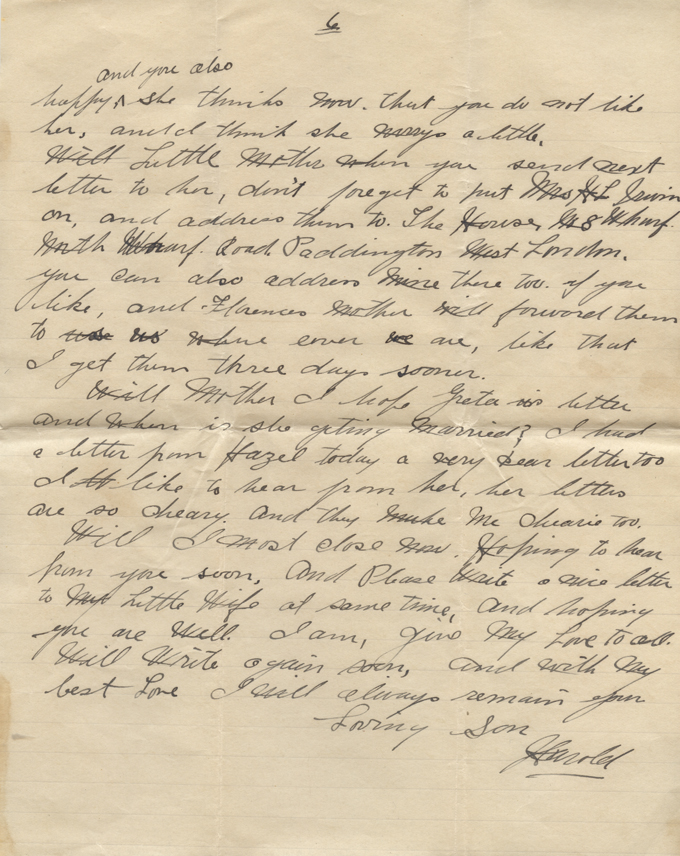 6
and you also
happy, she thinks now. that you do not like
her, and I think she worrys a little.
Will Little Mother when you send next
letter to her, don't forget to put Mrs H L Irwin
on, and address them to. The House, M S Wharf.
North Wharf. Road. Paddington West London.
you can also address mine there too. if you
like, and Florences Mother will forward them
to us where ever we are, like that
I get them three days sooner.
Will Mother I hope Greta is better
and when is she getting married? I had
a letter from Hazel today a very dear letter too
I like to hear from her, her letters
are so cheary. and they make me chearie too.
Will I most close now. Hoping to hear
from you soon, and Please write a nice letter
to My Little Wife at same time, and hoping
you are Well. I am, give My Love to all.
Will Write again soon, and with My
best Love I will always remain your
Loving Son
Harold